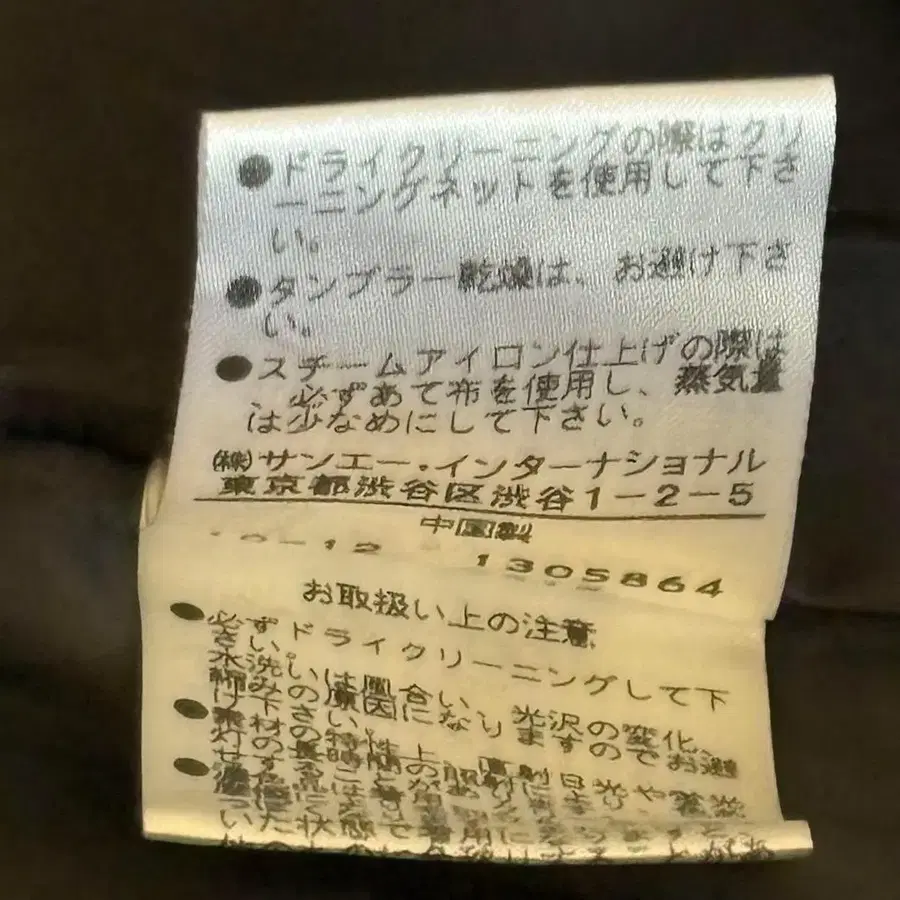 ●ドライクリーニングの際はクリ
ーニングネットを使用して下さ
い。
●タンブラー乾燥は、お避け下さ
い。
●スチームアイロン仕上げの際は
必ずあて布を使用し、蒸気量
は少なめにして下さい。
㈱サンエー・インターナショナル
東京都渋谷区渋谷1-2-5
中国製
10-12 1305864
お取扱い上の注意
●必ずドライクリーニングして下
さい。
水洗いは風合い、光沢の変化、
縮みの原因になりますのでお避
け下さい。
●素材の特性上、直射日光や蛍光
灯の長時間の
せることがあります
●
った状態で着用